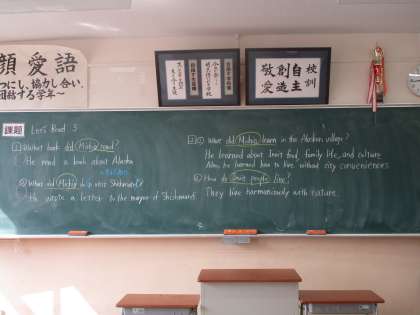 顔 愛 語
つにし、協力し合い、
団結する学年〜
校訓
自主
創造
敬愛
課題
Let's Read 3
1 What book did Michio read?
He read a book about Alaska.
2 What did Michio do to visit Shishmaref?
He wrote a letter to the mayor of Shishmaref.
3 ① What did Michio learn in the Alaskan village?
He learned about Inuit food, family life, and culture.
Also, he learned how to live without city conveniences.
② How do Inuit people live?
They live harmoniously with nature.